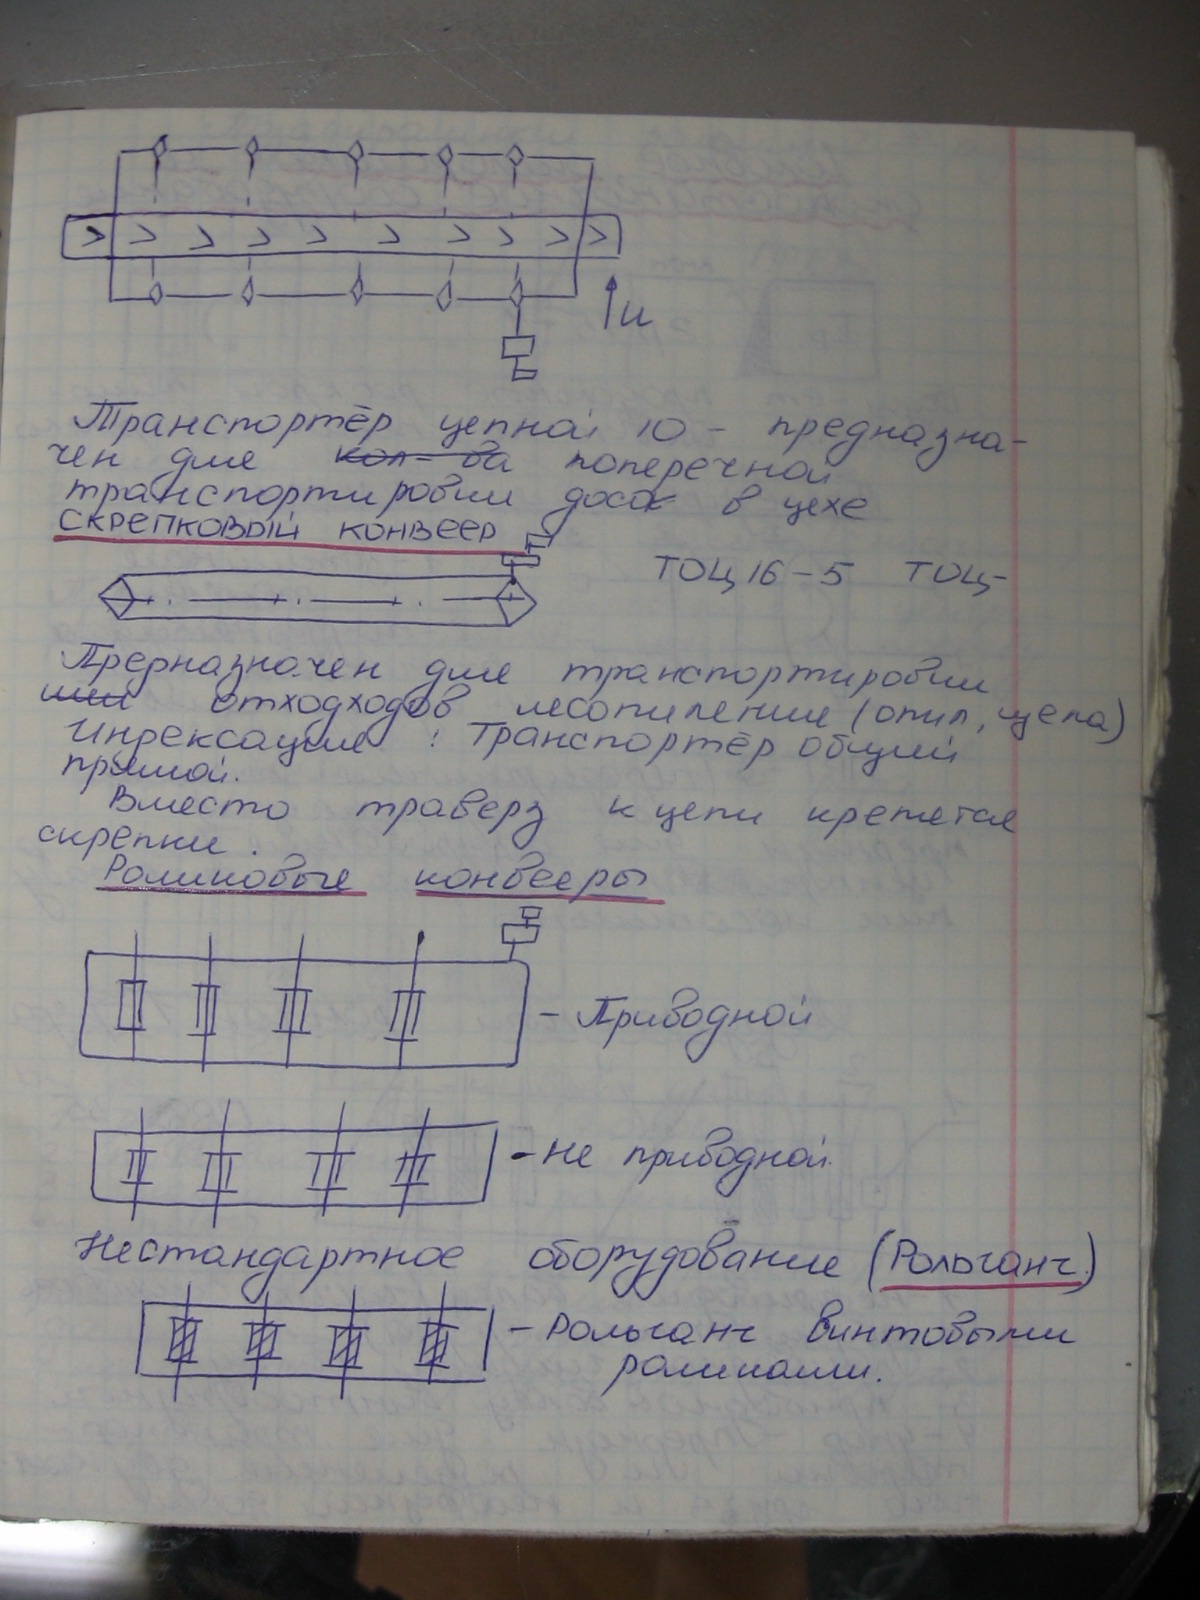 u
Транспортёр цепной 10 - предназна-
чен для кол-ва поперечной
транспортировки досок в цехе
СКРЕПКОВЫЙ КОНВЕЕР
ТОЦ16-5 ТОЦ-
Предназначен для транспортировки
отходходов лесопиления (опил, щепа)
Индексация: Транспортёр общий
прямой.
Вместо траверз к цепи крепятся
скрепки.
Роликовые конвееры
- Приводной
- Не приводной.
Нестандартное оборудование (Рольганг.)
- Рольганг винтовыми
роликами.